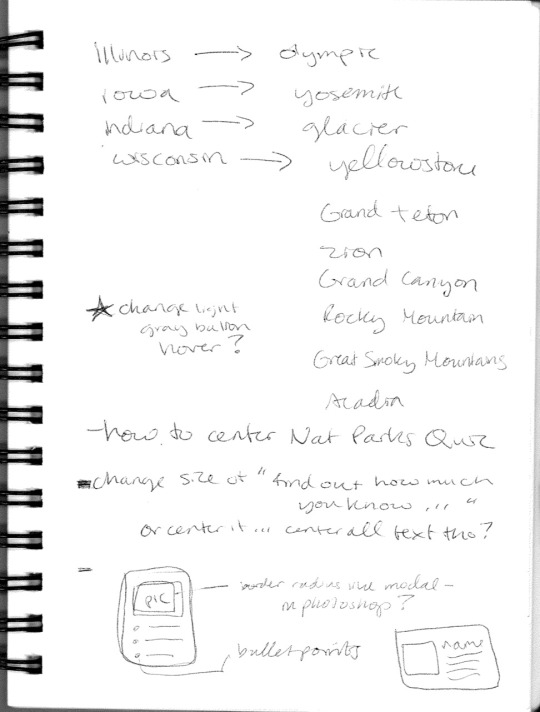 Illinois → olympic
iowa → yosemite
indiana → glacier
wisconsin → yellowstone
Grand teton
zion
Grand Canyon
★ change light
gray button
hover?
Rocky Mountain
Great Smoky Mountains
Acadia
- how to center Nat Parks Quiz
- change size of "find out how much
you know ... "
or center it ... center all text tho?
-
pic
border radius like modal -
in photoshop?
bullet points
name